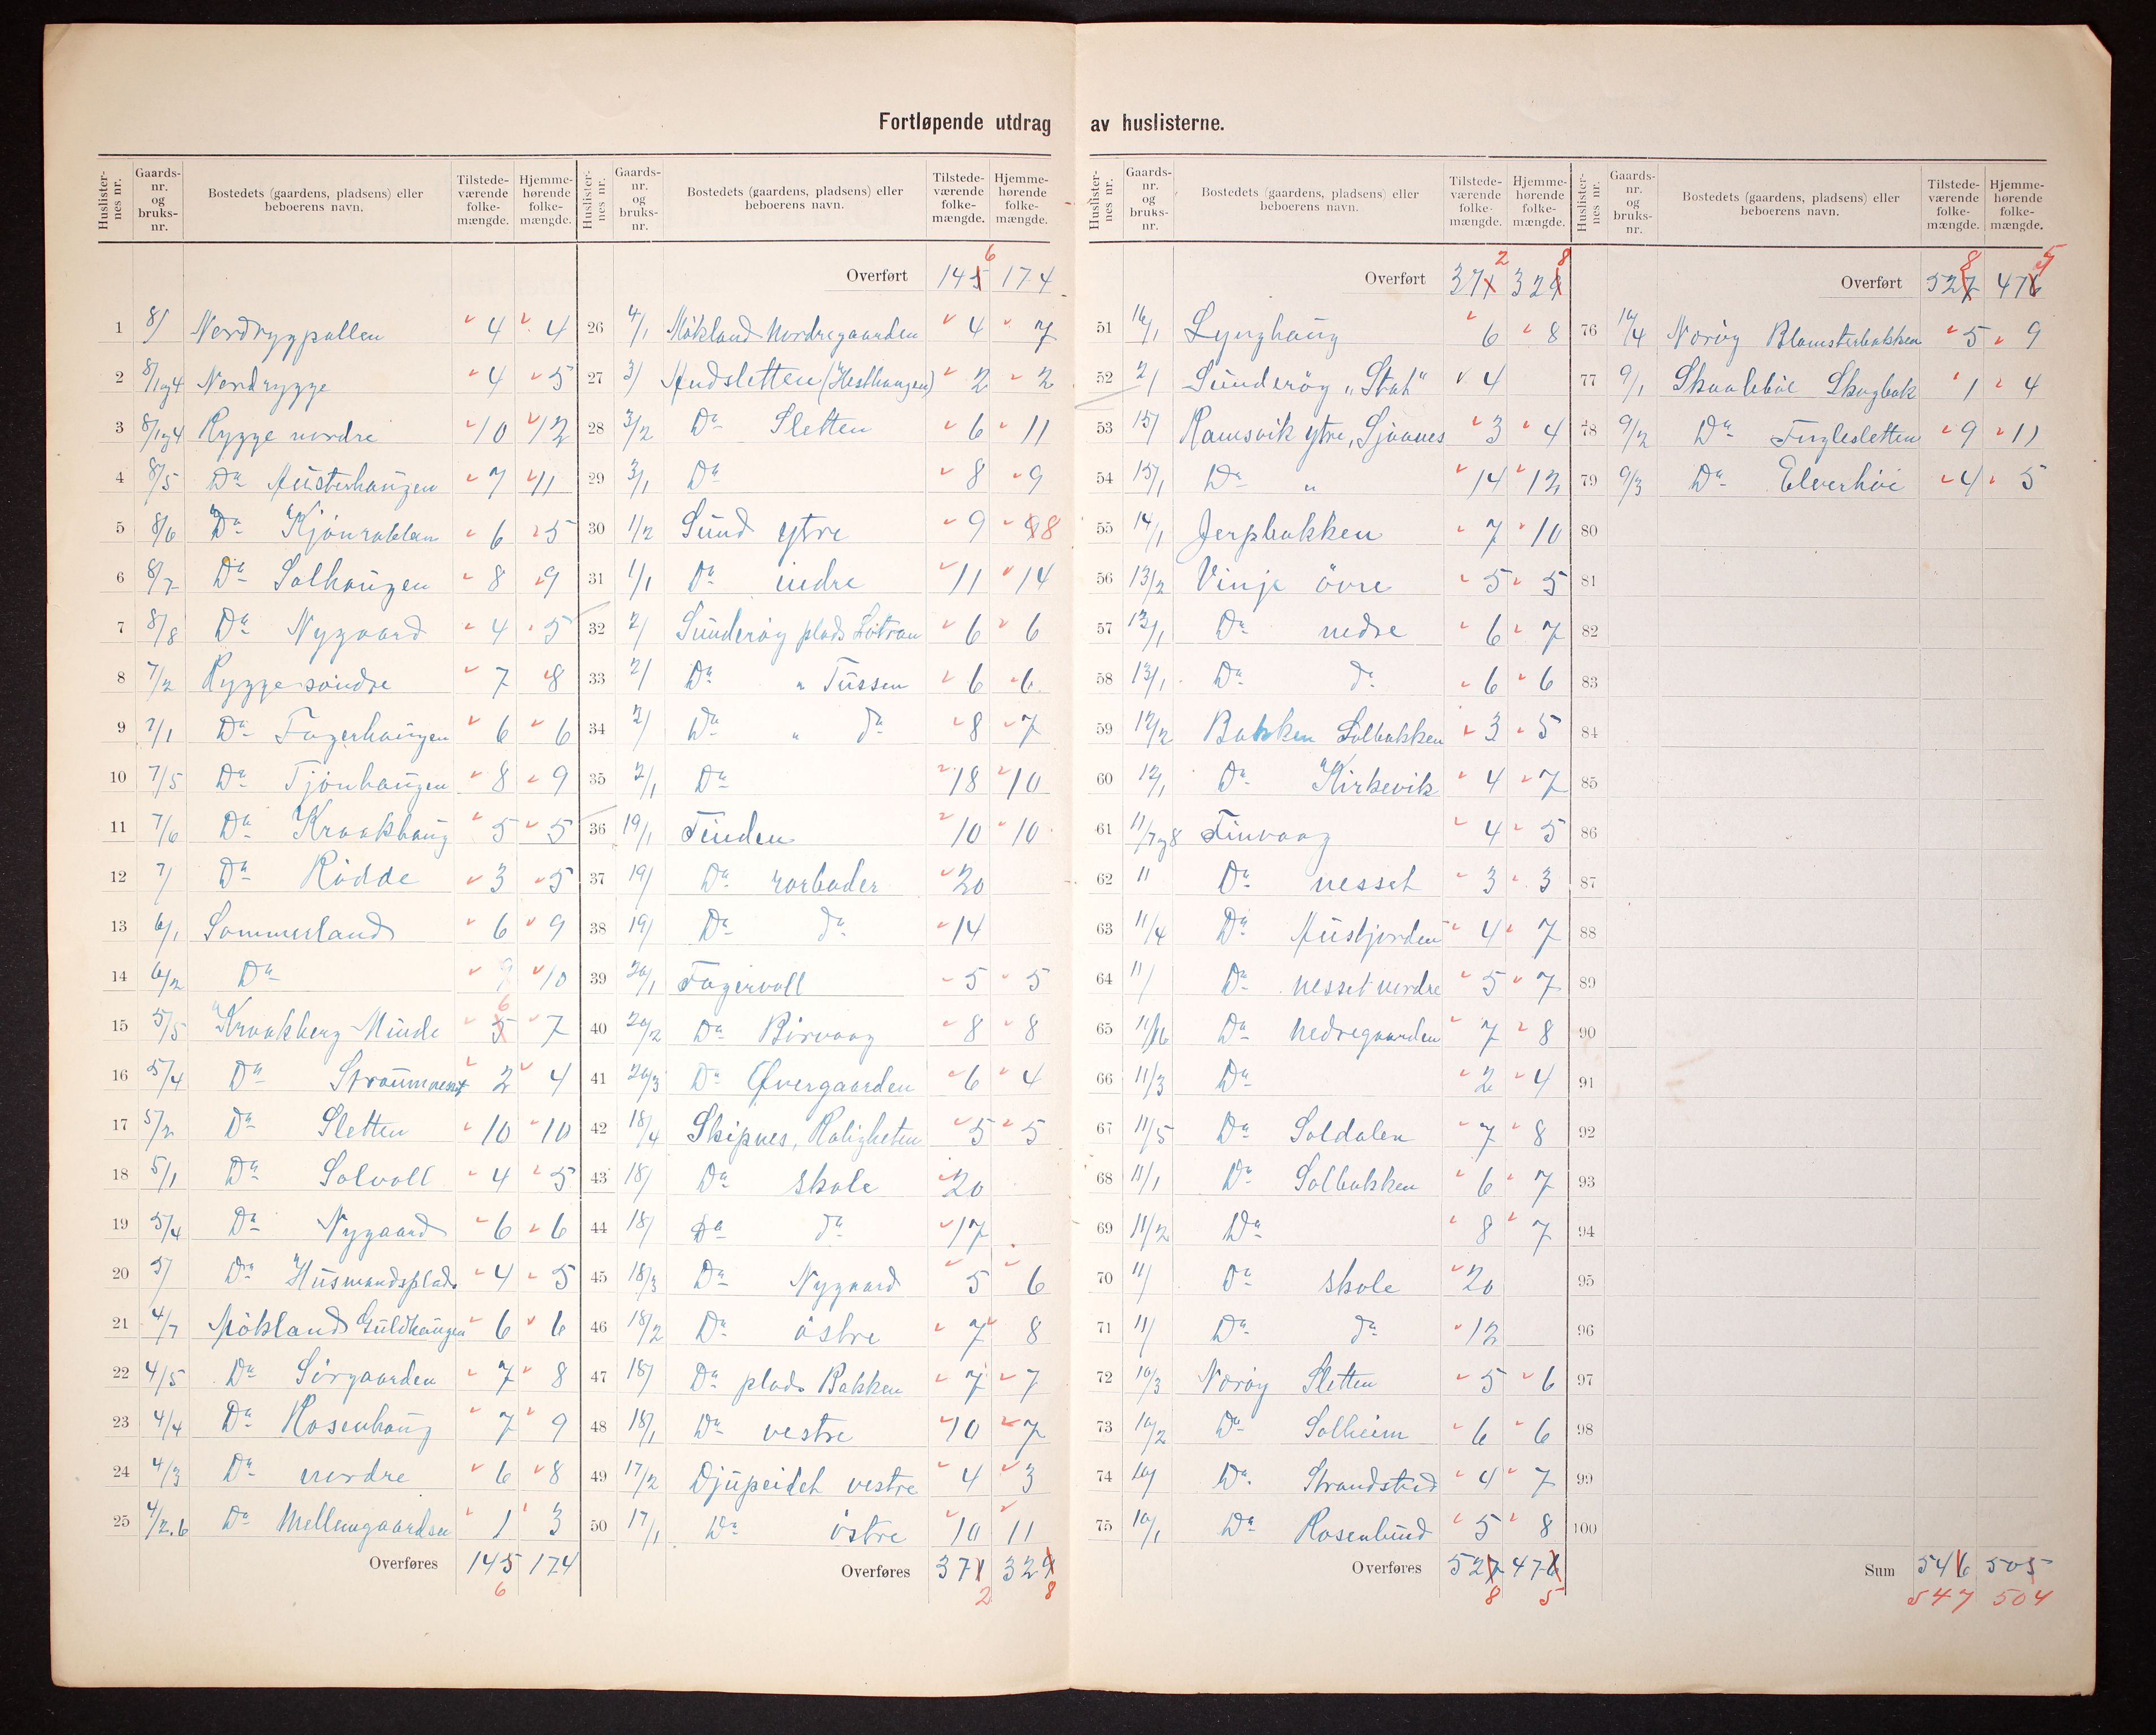 Fortløpende utdrag av huslisterne.
Huslister-nes nr. Gaards-nr. og bruks-nr. Bostedets (gaardens, pladsens) eller beboerens navn. Tilstede-værende folke-mængde. Hjemme-hørende folke-mængde.
1 8/ Nordryggpollen 4 4
2 8/1og4 Nordrygge 4 5
3 8/1og4 Rygge nordre 10 12
4 8/5 Do Austerhaugen 7 11
5 8/6 Do Kjönrakken 6 5
6 8/7 Do Solhaugen 8 9
7 8/8 Do Nygaard 4 5
8 7/2 Rygge söndre 7 8
9 7/1 Do Fagerhaugen 6 6
10 7/5 Do Tjönhaugen 8 9
11 7/6 Do Kraakhaug 5 5
12 7/ Do Rödde 3 5
13 6/1 Sommerland 6 9
14 6/2 Do 9 10
15 5/5 Kraakberg Minde 5 6 7
16 5/4 Do Straumnest 2 4
17 5/2 Do Sletten 10 10
18 5/1 Do Solvoll 4 5
19 5/4 Do Nygaard 6 6
20 5/ Do Husmandsplads 4 5
21 4/7 Mökland Guldhaugen 6 6
22 4/5 Do Sörgaarden 7 8
23 4/4 Do Rosenhaug 7 9
24 4/3 Do nordre 6 8
25 4/2.6 Do Mellemgaarden 1 3
Overføres 145 174
6
Huslister-nes nr. Gaards-nr. og bruks-nr. Bostedets (gaardens, pladsens) eller beboerens navn. Tilstede-værende folke-mængde. Hjemme-hørende folke-mængde.
Overført 145 6 174
26 4/1 Mökland Nordregaarden 4 7
27 3/ Audsletten (Hesthaugen) 2 2
28 3/2 Do Sletten 6 11
29 3/1 Do 8 9
30 1/2 Sund ytre 9 9 8
31 1/1 Do indre 11 14
32 2/ Sunderöy plads Lötran 6 6
33 2/ Do " Tussen 6 6
34 2/ Do " do 8 7
35 2/1 Do 18 10
36 19/1 Tinden 10 10
37 19/ Do rorboder 20
38 19/ Do do 14
39 20/1 Fagervoll 5 5
40 20/2 Do Börvaag 8 8
41 20/3 Do Øvergaarden 6 4
42 18/4 Skipnes, Roligheten 5 5
43 18/ Do skole 20
44 18/ Do do 17
45 18/3 Do Nygaard 5 6
46 18/2 Do östre 7 8
47 18/ Do plads Bakken 7 7
48 18/1 Do vestre 10 7
49 17/2 Djupeidet vestre 4 3
50 17/1 Do östre 10 11
Overføres 371 329
2 8
Huslister-nes nr. Gaards-nr. og bruks-nr. Bostedets (gaardens, pladsens) eller beboerens navn. Tilstede-værende folke-mængde. Hjemme-hørende folke-mængde.
Overført 371 2 329 8
51 16/1 Lynghaug 6 8
52 2/ Sunderöy "Strat" 4
53 15/ Ramsvik ytre, Sjönnes 3 4
54 15/1 Do " 14 12
55 14/1 Jerpbakken 7 10
56 13/2 Vinje övre 5 5
57 13/1 Do nedre 6 7
58 13/1 Do do 6 6
59 12/2 Bakken Solbakken 3 5
60 12/1 Do Kirkevik 4 7
61 11/7og8 Finvaag 4 5
62 11 Do nesset 3 3
63 11/4 Do Ausljorden 4 7
64 11/ Do nesset nordre 5 7
65 11/16 Do Nedregaarden 7 8
66 11/3 Do 2 4
67 11/5 Do Soldalen 7 8
68 11/1 Do Solbakken 6 7
69 11/2 Do 8 7
70 11/ Do skole 20
71 11/ Do do 12
72 10/3 Noröy Sletten 5 6
73 10/2 Do Solheim 6 6
74 10/ Do Strandsted 4 7
75 10/1 Do Rosenlund 5 8
Overføres 527 476
8 5
Huslister-nes nr. Gaards-nr. og bruks-nr. Bostedets (gaardens, pladsens) eller beboerens navn. Tilstede-værende folke-mængde. Hjemme-hørende folke-mængde.
Overført 527 8 476 5
76 10/4 Noröy Blomsterbakken 5 9
77 9/1 Skaaleböe Skogbak 1 4
78 9/2 Do Fuglesletten 9 11
79 9/3 Do Elverhöi 4 5
80
81
82
83
84
85
86
87
88
89
90
91
92
93
94
95
96
97
98
99
100
Sum 546 505
547 504